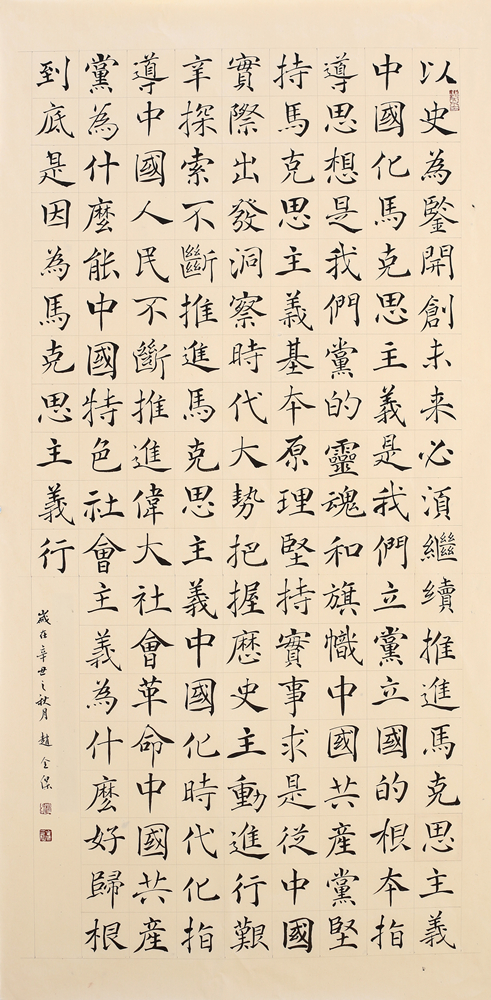 以史為鑒開創未来必須繼續推進馬克思主義
中國化馬克思主義是我們立黨立國的根本指
導思想是我們黨的靈魂和旗幟中國共産黨堅
持馬克思主義基本原理堅持實事求是從中國
實際出發洞察時代大勢把握歷史主動進行艱
辛探索不斷推進馬克思主義中國化時代化指
導中國人民不斷推進偉大社會革命中國共産
黨為什麼能中國特色社會主義為什麼好歸根
到底是因為馬克思主義行
歲在辛丑之秋月 趙全